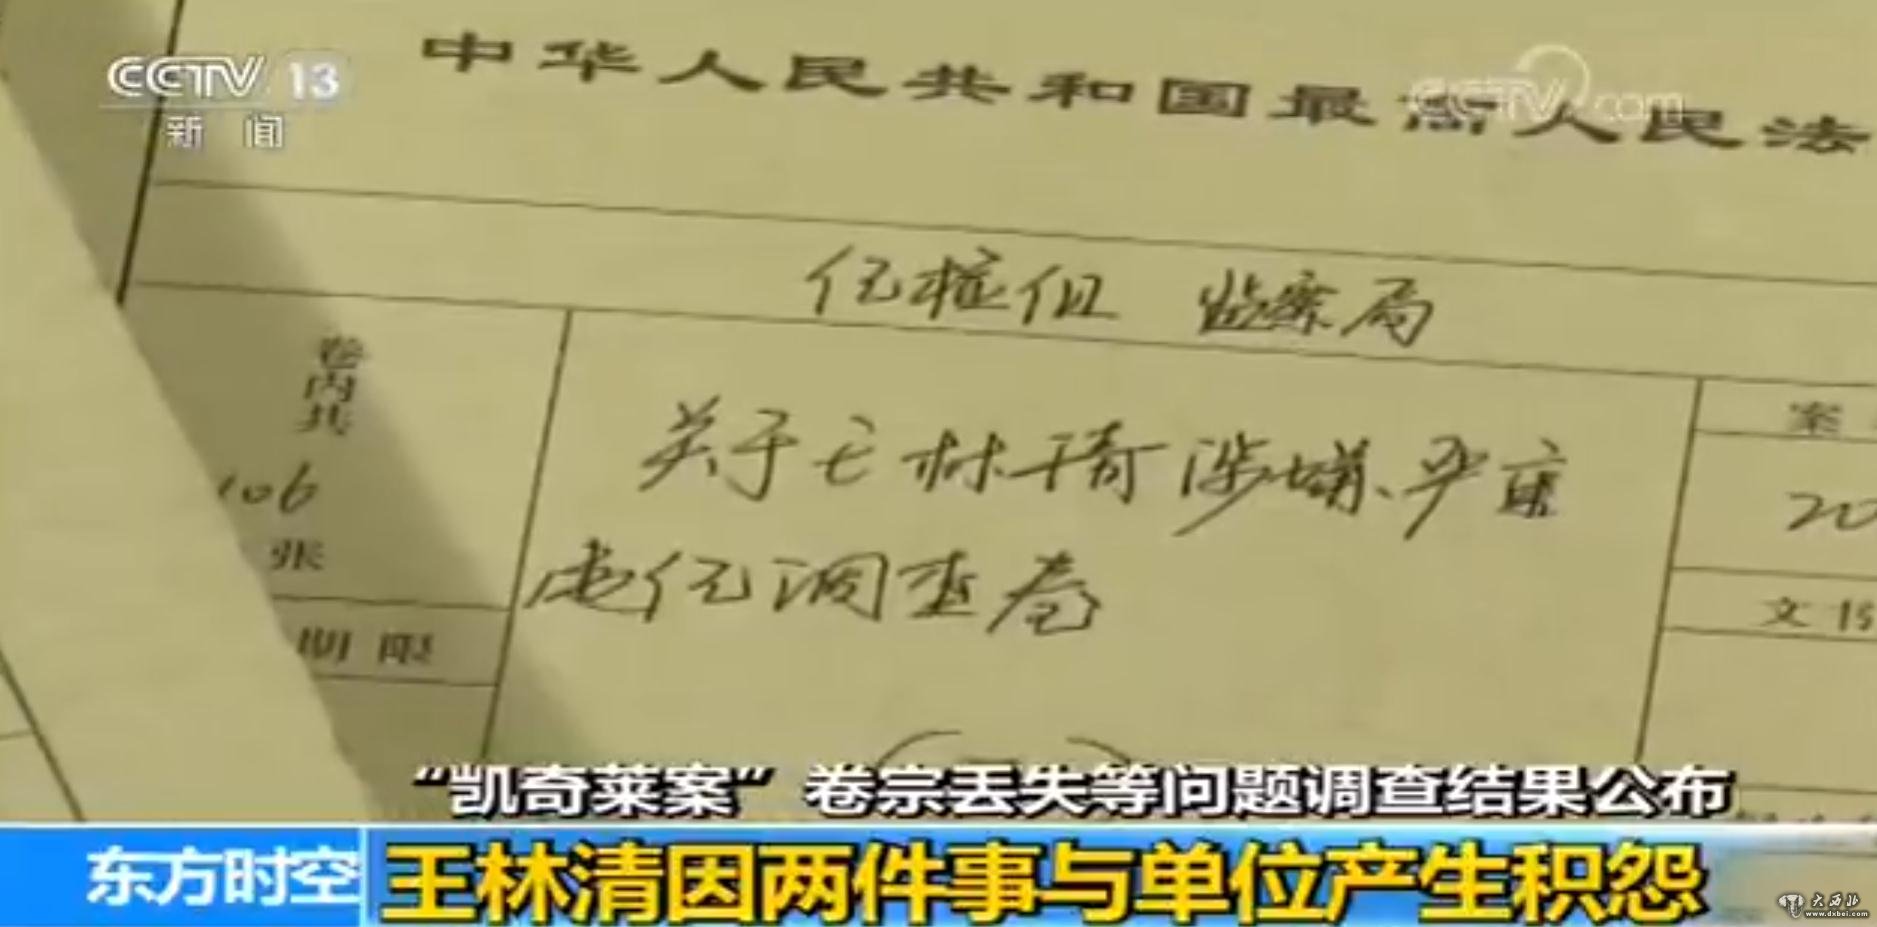 CCTV 13
新闻
CCTV.com
中华人民共和国最高人民法
监察局
卷内共
106
张
期限
关于王林清涉嫌严重
违纪调查卷
(一)
案
20
文书
“凯奇莱案”卷宗丢失等问题调查结果公布
东方时空
王林清因两件事与单位产生积怨
大西北
www.dxbei.com